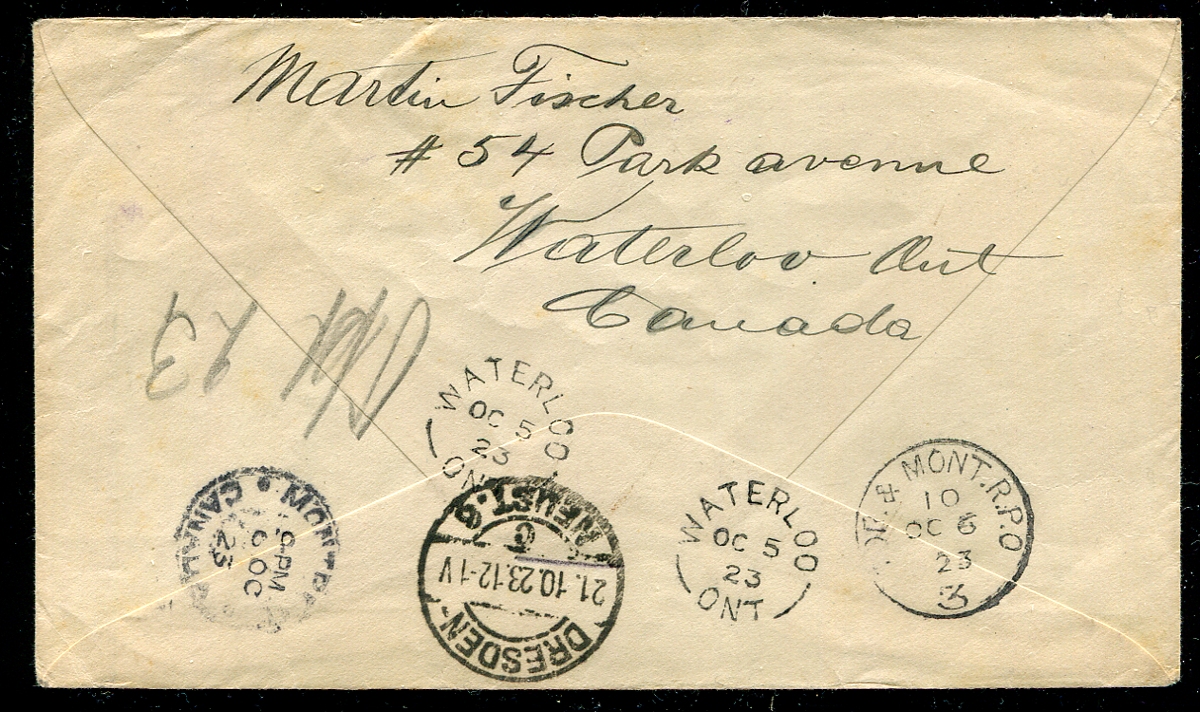 Martin Fischer
# 54 Park avenue
Waterloo Ont
Canada
23
WATERLOO
OC 5
23
ONT
MONTREAL CANADA
9-PM
6 OC
23
DRESDEN-NEUST. 6
21.10.23.12-1V
WATERLOO
OC 5
23
ONT
& MONT. R.P.O
10
OC 6
23
3